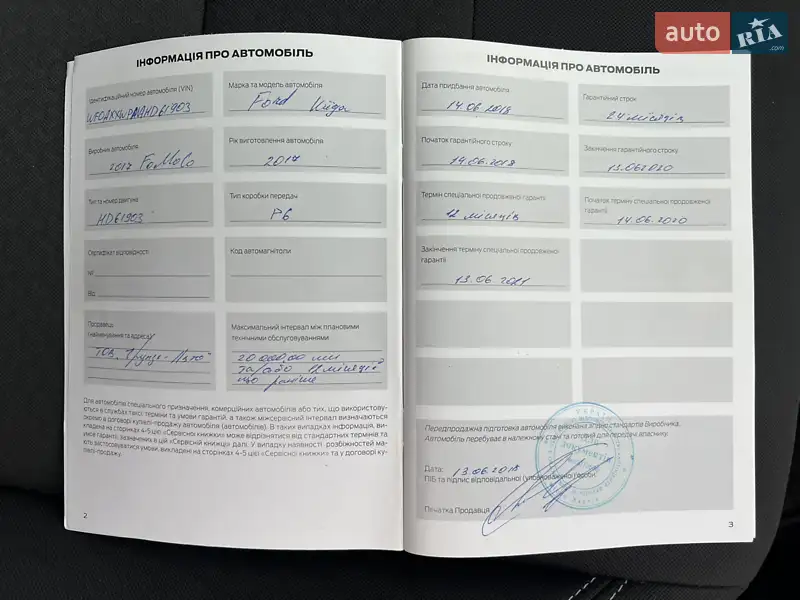 auto RIA .com
ІНФОРМАЦІЯ ПРО АВТОМОБІЛЬ
Ідентифікаційний номер автомобіля (VIN)
Марка та модель автомобіля
Ford Kuga
Виробник автомобіля
2017 FoMoCo
Рік виготовлення автомобіля
2017
Тип та номер двигуна
HD61903
Тип коробки передач
P6
Сертифікат відповідності
№
Від
Код автомагнітоли
Продавець
(найменування та адреса)
Максимальний інтервал між плановими
технічними обслуговуваннями
20 000,00 км
та/або 12 місяців
що раніше
Для автомобілів спеціального призначення, комерційних автомобілів або тих, що використову-
ються в службах таксі, терміни та умови гарантій, а також міжсервісний інтервал визначаються
окремо в договорі купівлі-продажу автомобіля (автомобілів). В таких випадках інформація, ви-
кладена на сторінках 4-5 цієї «Сервісної книжки» може відрізнятися від стандартних термінів та
умов гарантії, зазначених в цій «Сервісній книжці» далі. У випадку наявності розбіжностей ма-
ють застосовуватися умови, викладені на сторінках 4-5 цієї «Сервісної книжки» та у договорі ку-
півлі-продажу.
2
ІНФОРМАЦІЯ ПРО АВТОМОБІЛЬ
Дата придбання автомобіля
14.06.2018
Гарантійний строк
24 місяців
Початок гарантійного строку
14.06.2018
Закінчення гарантійного строку
13.06.2020
Термін спеціальної продовженої гарантії
12 місяців
Початок терміну спеціальної продовженої
гарантії
14.06.2020
Закінчення терміну спеціальної продовженої
гарантії
13.06.2021
Передпродажна підготовка автомобіля виконана згідно стандартів Виробника.
Автомобіль перебуває в належному стані та готовий для передачі власнику.
Дата: 13.06.2018
ПІБ та підпис відповідальної (уповноваженої) особи
Печатка Продавця
3